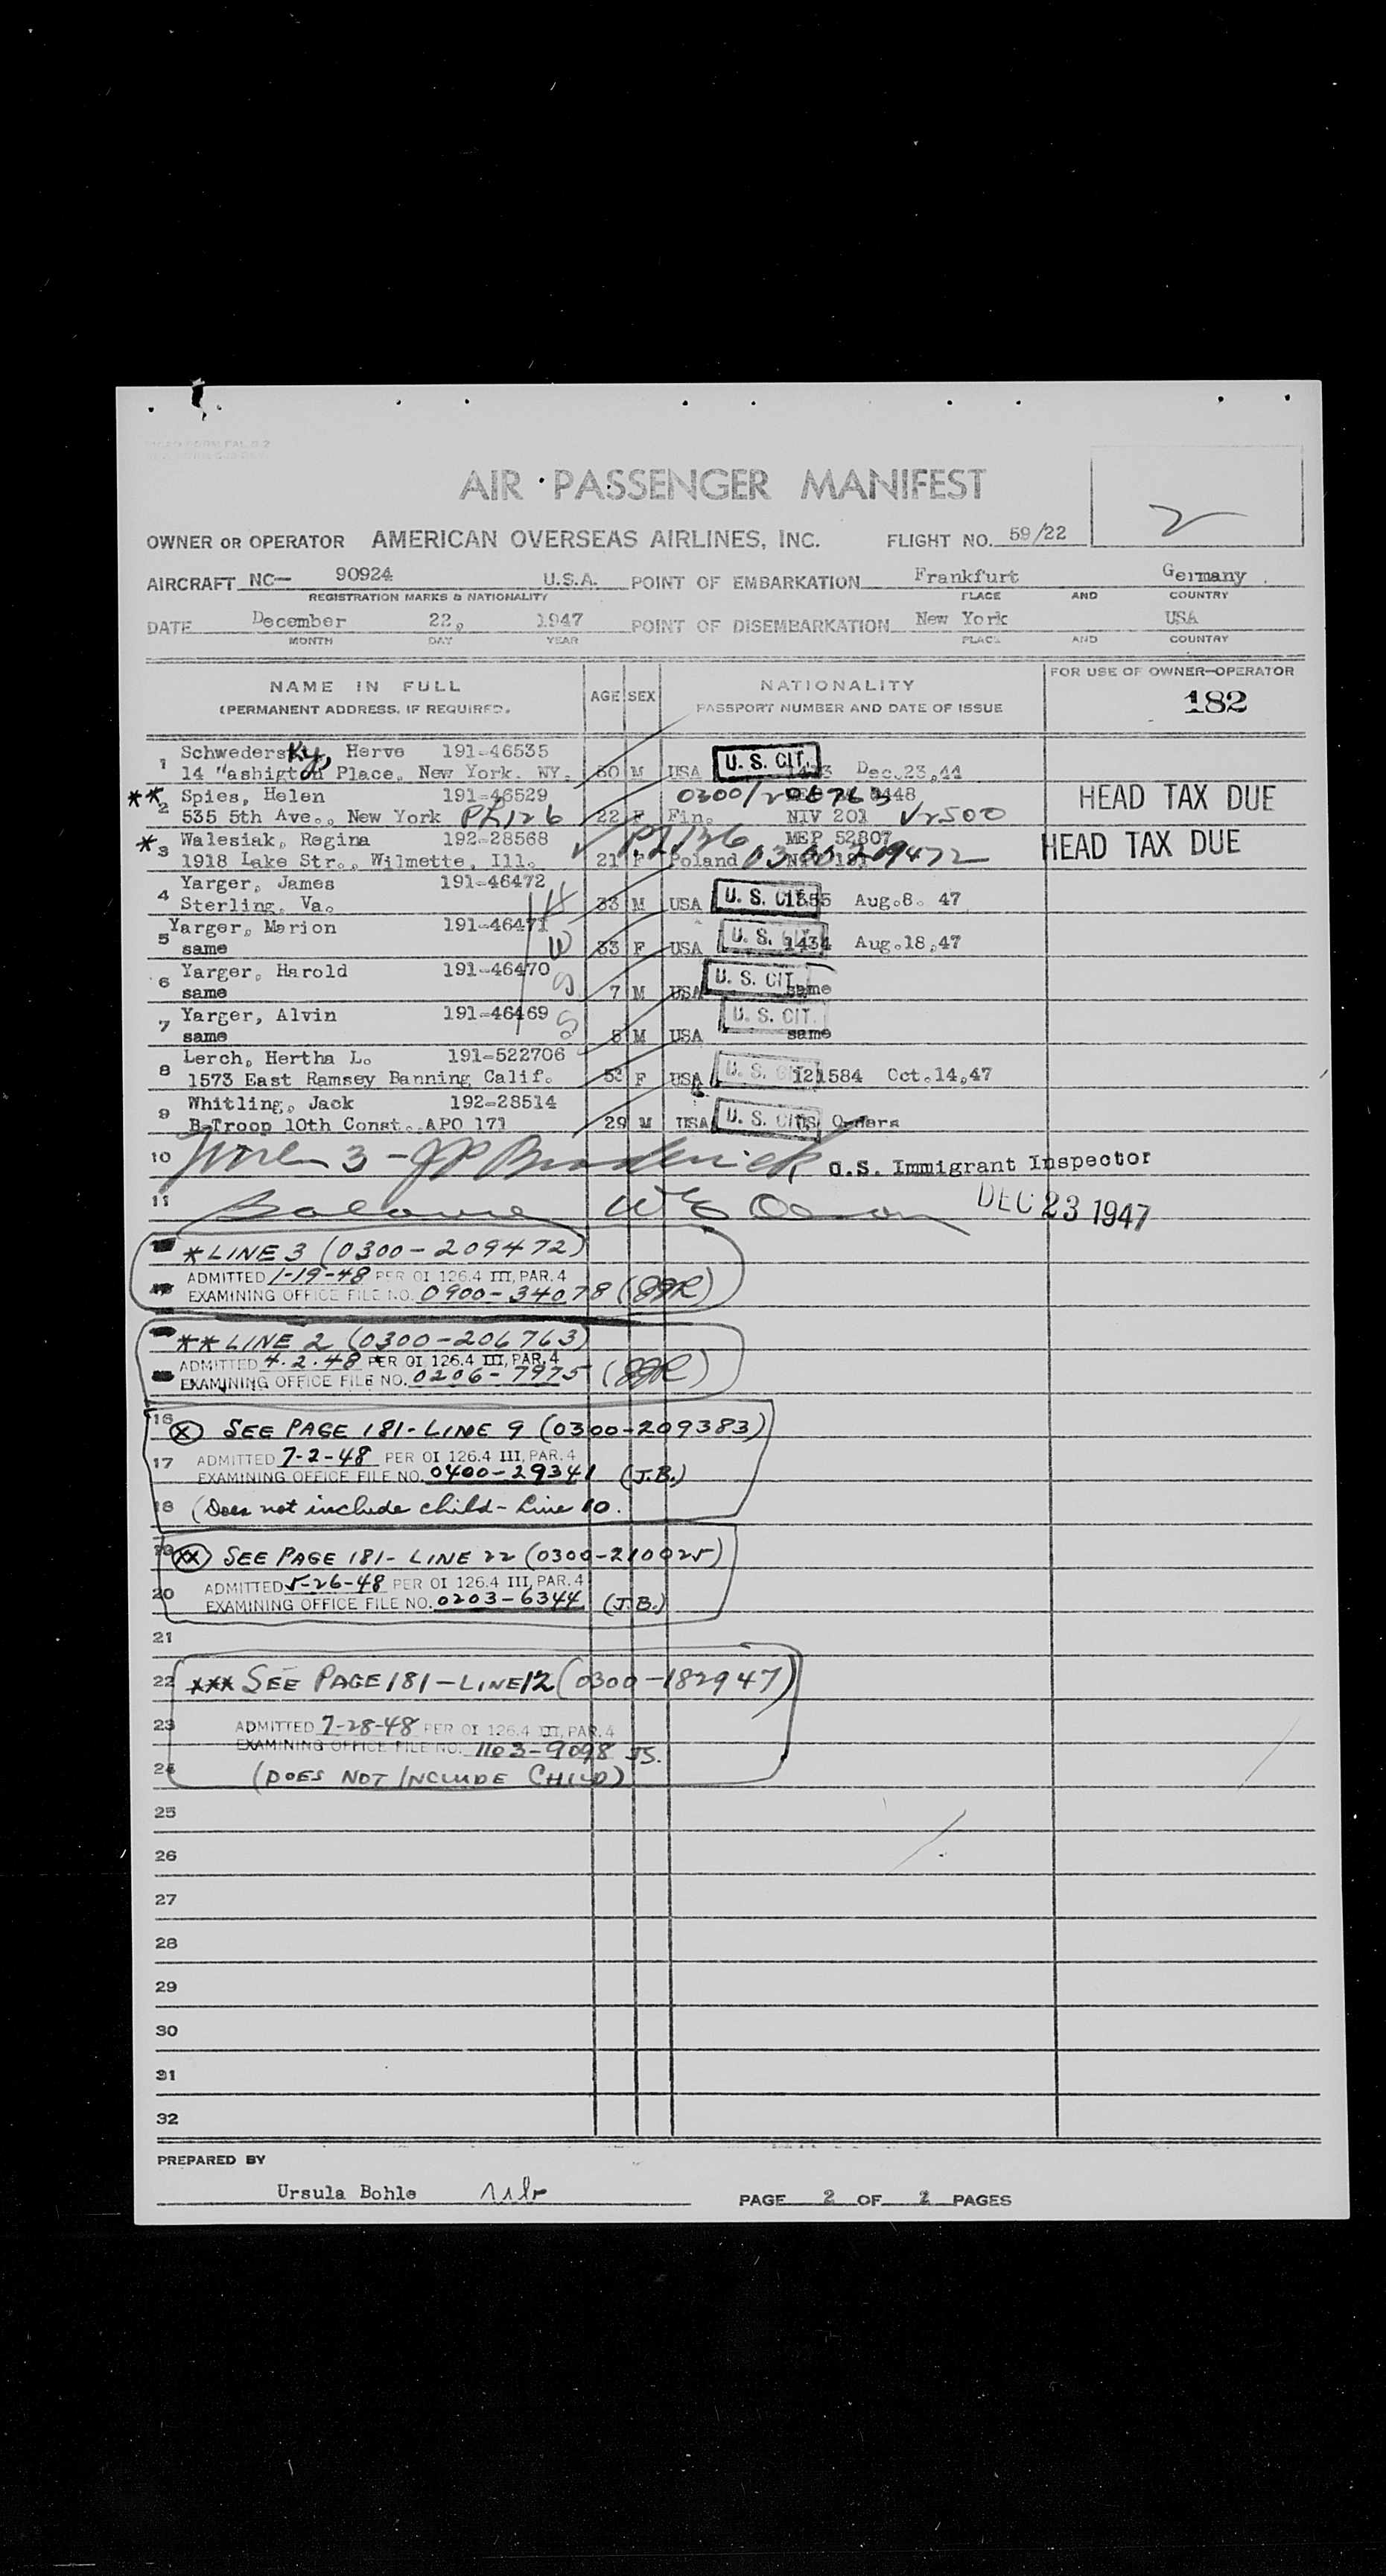 AIR PASSENGER MANIFEST
2
OWNER OR OPERATOR AMERICAN OVERSEAS AIRLINES, INC. FLIGHT NO. 59/22
AIRCRAFT NC— 90924 U.S.A. POINT OF EMBARKATION Frankfurt Germany
REGISTRATION MARKS & NATIONALITY PLACE AND COUNTRY
DATE December 22, 1947 POINT OF DISEMBARKATION New York USA
MONTH DAY YEAR PLACE AND COUNTRY
NAME IN FULL AGE SEX NATIONALITY FOR USE OF OWNER-OPERATOR
(PERMANENT ADDRESS, IF REQUIRED. PASSPORT NUMBER AND DATE OF ISSUE 182
1 Schwedersky, Herve 191-46535
14 "ashigton Place, New York. NY. M USA U.S. CIT. Dec.23,44
** 2 Spies, Helen 191-46529 0300/206763 HEAD TAX DUE
535 5th Ave., New York PL126 22 F Fin. NIV 201 V2500
* 3 Walesiak, Regina 192-28568 PL136 MEP 52807 HEAD TAX DUE
1918 Lake Str., Wilmette, Ill. 21 F Poland 0300-209472
4 Yarger, James 191-46472 H
Sterling, Va. 33 M USA U. S. CIT. 1355 Aug.8. 47
5 Yarger, Marion 191-46471 W
same 33 F USA U. S. CIT. 1434 Aug.18,47
6 Yarger, Harold 191-46470 S
same 7 M USA U. S. CIT. same
7 Yarger, Alvin 191-46469 S
same M USA U. S. CIT. same
8 Lerch, Hertha L. 191-522706
1573 East Ramsey Banning Calif. F USA U. S. CIT. 121584 Oct.14,47
9 Whitling, Jack 192-28514
B-Troop 10th Const. APO 171 29 M USA U. S. CIT. Orders
10 3 - JP Broderick U.S. Immigrant Inspector
11 DEC 23 1947
*LINE 3 (0300-209472)
ADMITTED 1-19-48 PER OI 126.4 III, PAR. 4
EXAMINING OFFICE FILE NO. 0900-34078 (JJR)
**LINE 2 (0300-206763)
ADMITTED 4.2.48 PER OI 126.4 III, PAR. 4
EXAMINING OFFICE FILE NO. 0206-7975 (JJR)
16 (X) SEE PAGE 181-LINE 9 (0300-209383)
17 ADMITTED 7-2-48 PER OI 126.4 III, PAR. 4
EXAMINING OFFICE FILE NO. 0400-29341 (J.B.)
18 (Does not include child - Line 10.
19 (XX) SEE PAGE 181- LINE 22 (0300-210025)
20 ADMITTED 5-26-48 PER OI 126.4 III, PAR. 4
EXAMINING OFFICE FILE NO. 0203-6344 (J.B.)
21
22 *** SEE PAGE 181-LINE 12 (0300-182947)
23 ADMITTED 7-28-48 PER OI 126.4 III, PAR. 4
EXAMINING OFFICE FILE NO. 1103-9098 JS.
24 (DOES NOT INCLUDE CHILD)
25
26
27
28
29
30
31
32
PREPARED BY
Ursula Bohle
PAGE 2 OF 2 PAGES